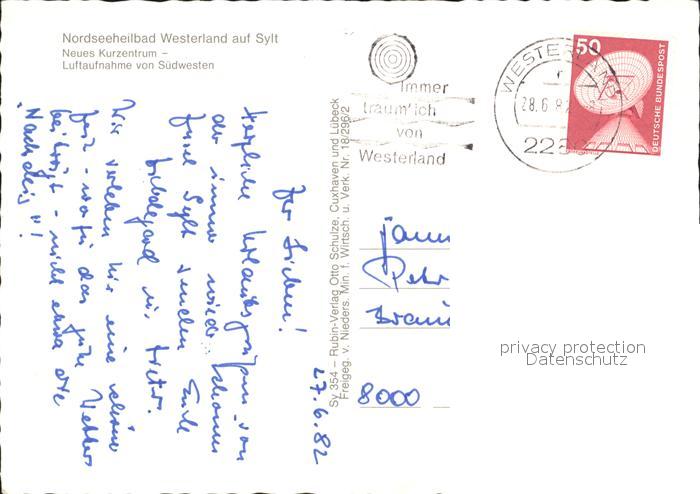 Nordseeheilbad Westerland auf Sylt
Neues Kurzentrum –
Luftaufnahme von Südwesten
27.6.82
Ihr Lieben!
Herzliche Urlaubsgrüße von
der immer wieder schönen
Insel Sylt senden Euch
Hildegard und Dieter.
Wir verleben hier eine schöne
Zeit - wozu das gute Wetter
beiträgt - nicht etwa die
"Nackdeis"!
Sy 354 – Rubin-Verlag Otto Schulze, Cuxhaven und Lübeck
Freigeg. v. Nieders. Min. f. Wirtsch. u. Verk. Nr. 18/296/2
Immer
träum' ich
von
Westerland
WESTERLAND
28.6.82
50
DEUTSCHE BUNDESPOST
8000
privacy protection
Datenschutz